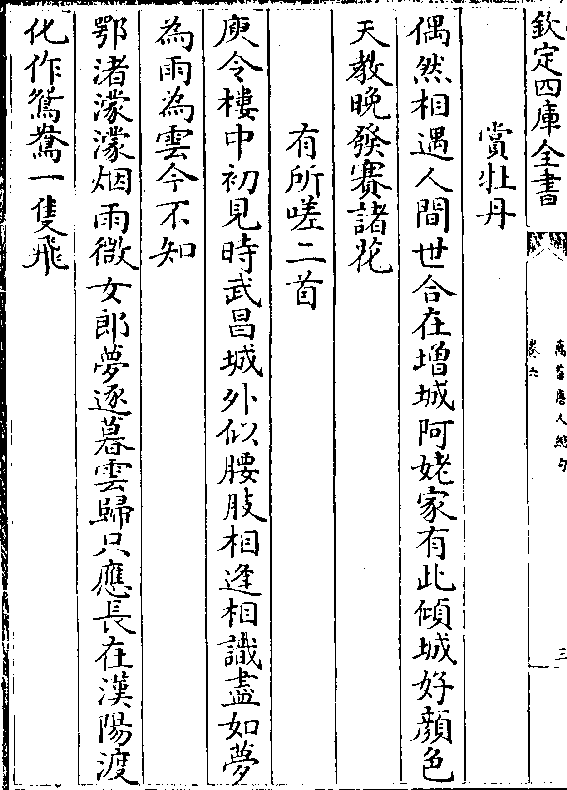 欽定四庫全書
萬首唐人絶句
卷六
三
賞牡丹
偶然相遇人間世合在增城阿姥家有此傾城好顔色
天教晚發賽諸花
有所嗟二首
庾令樓中初見時武昌城外似腰肢相逢相識盡如夢
為雨為雲今不知
鄂渚濛濛烟雨微女郎夢逐暮雲歸只應長在漢陽渡
化作鴛鴦一隻飛